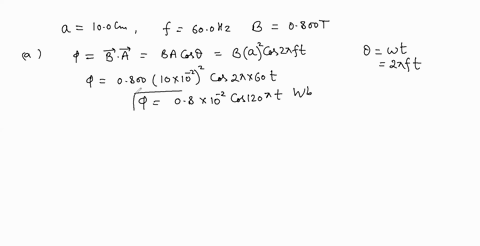 a = 10.0 cm, f = 60.0 Hz B = 0.800T
(a) ϕ = B⃗.A⃗ = BA Cosθ = B(a)² Cos2πft θ = ωt
= 2πft
ϕ = 0.800 (10×10⁻²)² Cos 2π×60 t
ϕ = 0.8 × 10⁻² Cos120πt Wb